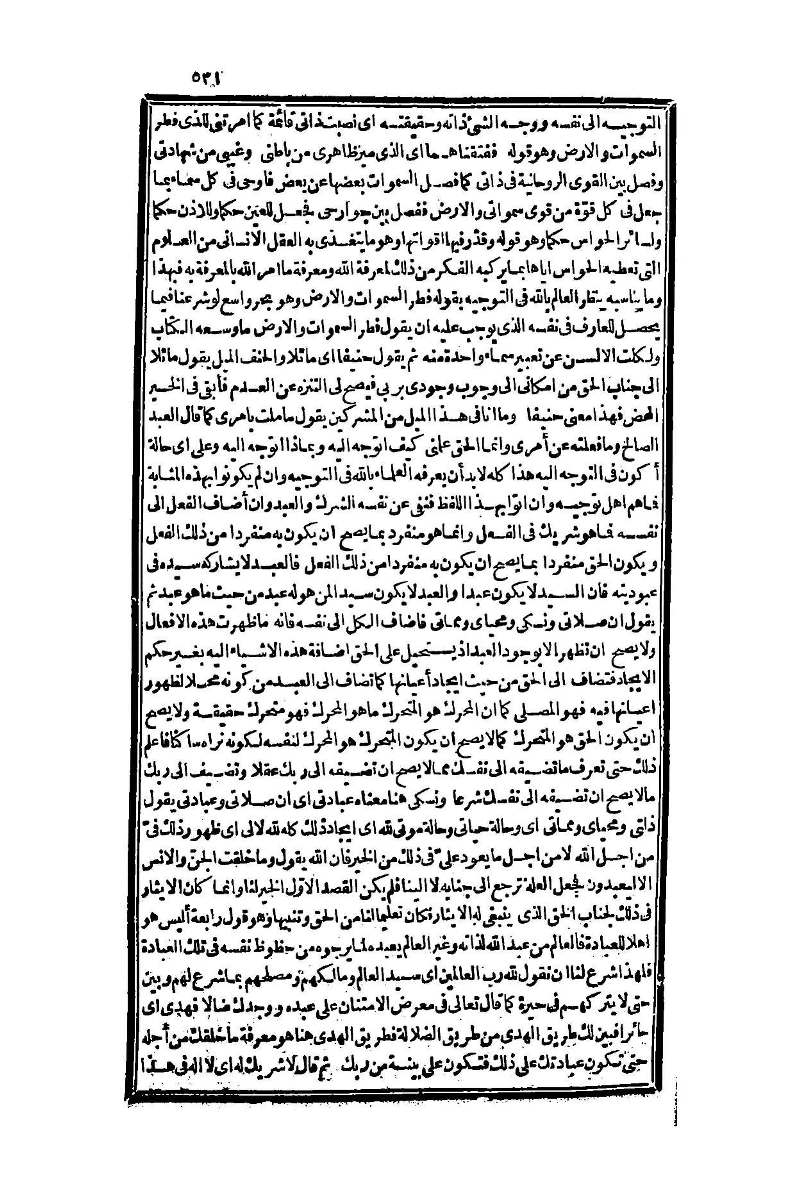 ٥٢١
التوجيه الى نفسه ووجه الشئ ذاته وحقيقته اى نصبت ذاتى قائمة كما امرتنى للذى فطر
السموات والارض وهو قوله ففتقناهما اى الذى ميز ظاهرى من باطنى وغيبى من شهادتى
وفصل بين القوى الروحانية فى ذاتى كما فصل السموات بعضها عن بعض فاوحى فى كل سماء بما
جعل فى كل قوّة من قوى سمواتى والارض ففصل بين جوارحى فجعل للعين حكما وللاذن حكما
ولسائر الحواس حكما وهو قوله وقدّر فيها اقواتها وهو ما يتغذى به العقل الانسانى من العلوم
التى تعطيه الحواس اياها بما يركبه الفكر من ذلك لمعرفة الله ومعرفة ما امر الله بالمعرفة به فبهذا
وما يناسبه ينظر العالم بالله فى التوجيه بقوله فطر السموات والارض وهو بحر واسع لو شرعنا فيما
يحصل للعارف فى نفسه الذى يوجب عليه ان يقول فطر السموات والارض ما وسعه الكتاب
ولكلت الالسن عن تعبير سماء واحدة منه ثم يقول حنيفا اى مائلا والحنف الميل يقول مائلا
الى جناب الحق من امكانى الى وجوب وجودى بربى فيصح لى التنزه عن العدم فأبقى فى الخير
المحض فهذا معنى حنيفا وما انا فى هذا الميل من المشركين يقول ما ملت بامرى كما قال العبد
الصالح وما فعلته عن أمرى وانما الحق علمنى كيف اتوجه اليه وبماذا اتوجه اليه وعلى اى حالة
أكون فى التوجه اليه هذا كله لابد أن يعرفه العلماء بالله فى التوجيه وان لم يكونوا بهذه المثابة
فما هم اهل توجيه وان اتوا بهذا اللفظ فنفى عن نفسه الشرك والعبد وان أضاف الفعل الى
نفسه فما هو شريك فى الفعل وانما هو منفرد بما يصح ان يكون به منفردا من ذلك الفعل
ويكون الحق منفردا بما يصح ان يكون به منفردا من ذلك الفعل فالعبد لا يشاركه سيده فى
عبوديته فان السيد لا يكون عبدا والعبد لا يكون سيدا لمن هو له عبد من حيث ما هو عبد ثم
يقول ان صلاتى ونسكى ومحياى ومماتى فاضاف الكل الى نفسه فانه ما ظهرت هذه الافعال
ولا يصح ان تظهر الا بوجود العبد اذ يستحيل على الحق اضافة هذه الاشياء اليه بغير حكم
الايجاد فتضاف الى الحق من حيث ايجاد أعيانها كما تضاف الى العبد من كونه محلا لظهور
اعيانها فيه فهو المصلى كما ان المحرك هو المتحرك ما هو المحرك فهو متحرك حقيقة ولا يصح
ان يكون الحق هو المتحرك كما لا يصح ان يكون المتحرك هو المحرك لنفسه لكونه نراه ساكنا فاعلم
ذلك حتى تعرف ما تضيفه الى نفسك مما لا يصح ان تضيفه الى ربك عقلا وتضيف الى ربك
ما لا يصح ان تضيفه الى نفسك شرعا ونسكى هنا معناه عبادتى اى ان صلاتى وعبادتى يقول
ذاتى ومحياى ومماتى اى وحالة حياتى وحالة موتى لله اى ايجاد ذلك كله لله لا لى اى ظهور ذلك فىّ
من اجل الله لا من اجل ما يعود علىّ فى ذلك من الخير فان الله يقول وما خلقت الجن والانس
الا ليعبدون فجعل العلة ترجع الى جنابه لا الينا فلم يكن القصد الاوّل الخير لنا وانما كان الايثار
فى ذلك لجناب الحق الذى ينبغى له الايثار فكان تعليما لنا من الحق وتنبيها وهو قول رابعة أليس هو
اهلا للعبادة فالعالم من عبد الله لذاته وغير العالم يعبده لما يرجوه من حظوظ نفسه فى تلك العبادة
فلهذا شرع لنا ان نقول لله رب العالمين اى سيد العالم ومالكهم ومصلحهم بما شرع لهم وبين
حتى لا يتركهم فى حيرة كما قال تعالى فى معرض الامتنان على عبده ووجدك ضالا فهدى اى
حائرا فبين لك طريق الهدى من طريق الضلالة فطريق الهدى هنا هو معرفة ما خلقك من أجله
حتى تكون عبادتك على ذلك فتكون على بينة من ربك ثم قال لا شريك له اى لا اله فى هذا